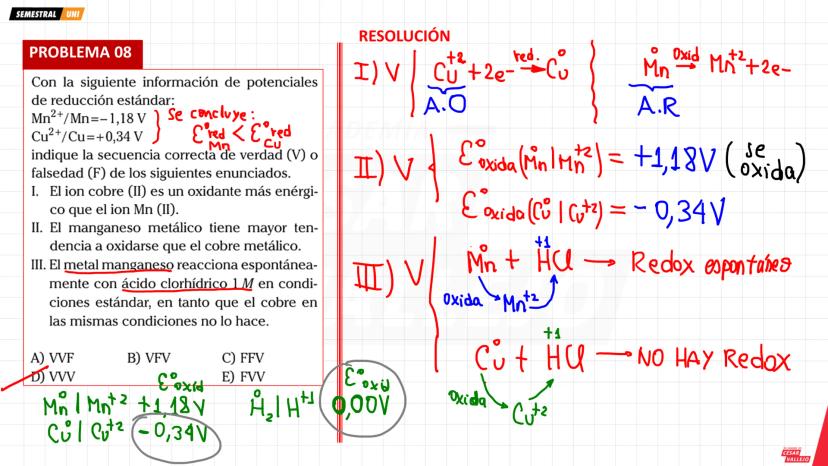 SEMESTRAL UNI
PROBLEMA 08
Con la siguiente información de potenciales
de reducción estándar:
Mn²⁺/Mn=–1,18 V
Cu²⁺/Cu=+0,34 V
Se concluye:
Ɛ°red Mn < Ɛ°red Cu
indique la secuencia correcta de verdad (V) o
falsedad (F) de los siguientes enunciados.
I. El ion cobre (II) es un oxidante más enérgi-
co que el ion Mn (II).
II. El manganeso metálico tiene mayor ten-
dencia a oxidarse que el cobre metálico.
III. El metal manganeso reacciona espontánea-
mente con ácido clorhídrico 1 M en condi-
ciones estándar, en tanto que el cobre en
las mismas condiciones no lo hace.
A) VVF B) VFV C) FFV
D) VVV E) FVV
Ɛ°oxid
Mn° | Mn⁺² +1,18V
Cu° | Cu⁺² -0,34V
Ɛ°oxid
H°₂ | H⁺¹ 0,00V
RESOLUCIÓN
I) V Cu⁺² + 2e- red. → Cu°
A.O
Mn° Oxid → Mn⁺² + 2e-
A.R
II) V Ɛ°oxida (Mn° | Mn⁺²) = +1,18V (se oxida)
Ɛ°oxida (Cu° | Cu⁺²) = - 0,34V
III) V Mn° + H⁺¹Cl → Redox espontáneo
oxida Mn⁺²
Cu° + H⁺¹Cl → NO HAY Redox
oxida Cu⁺²
CESAR
VALLEJO